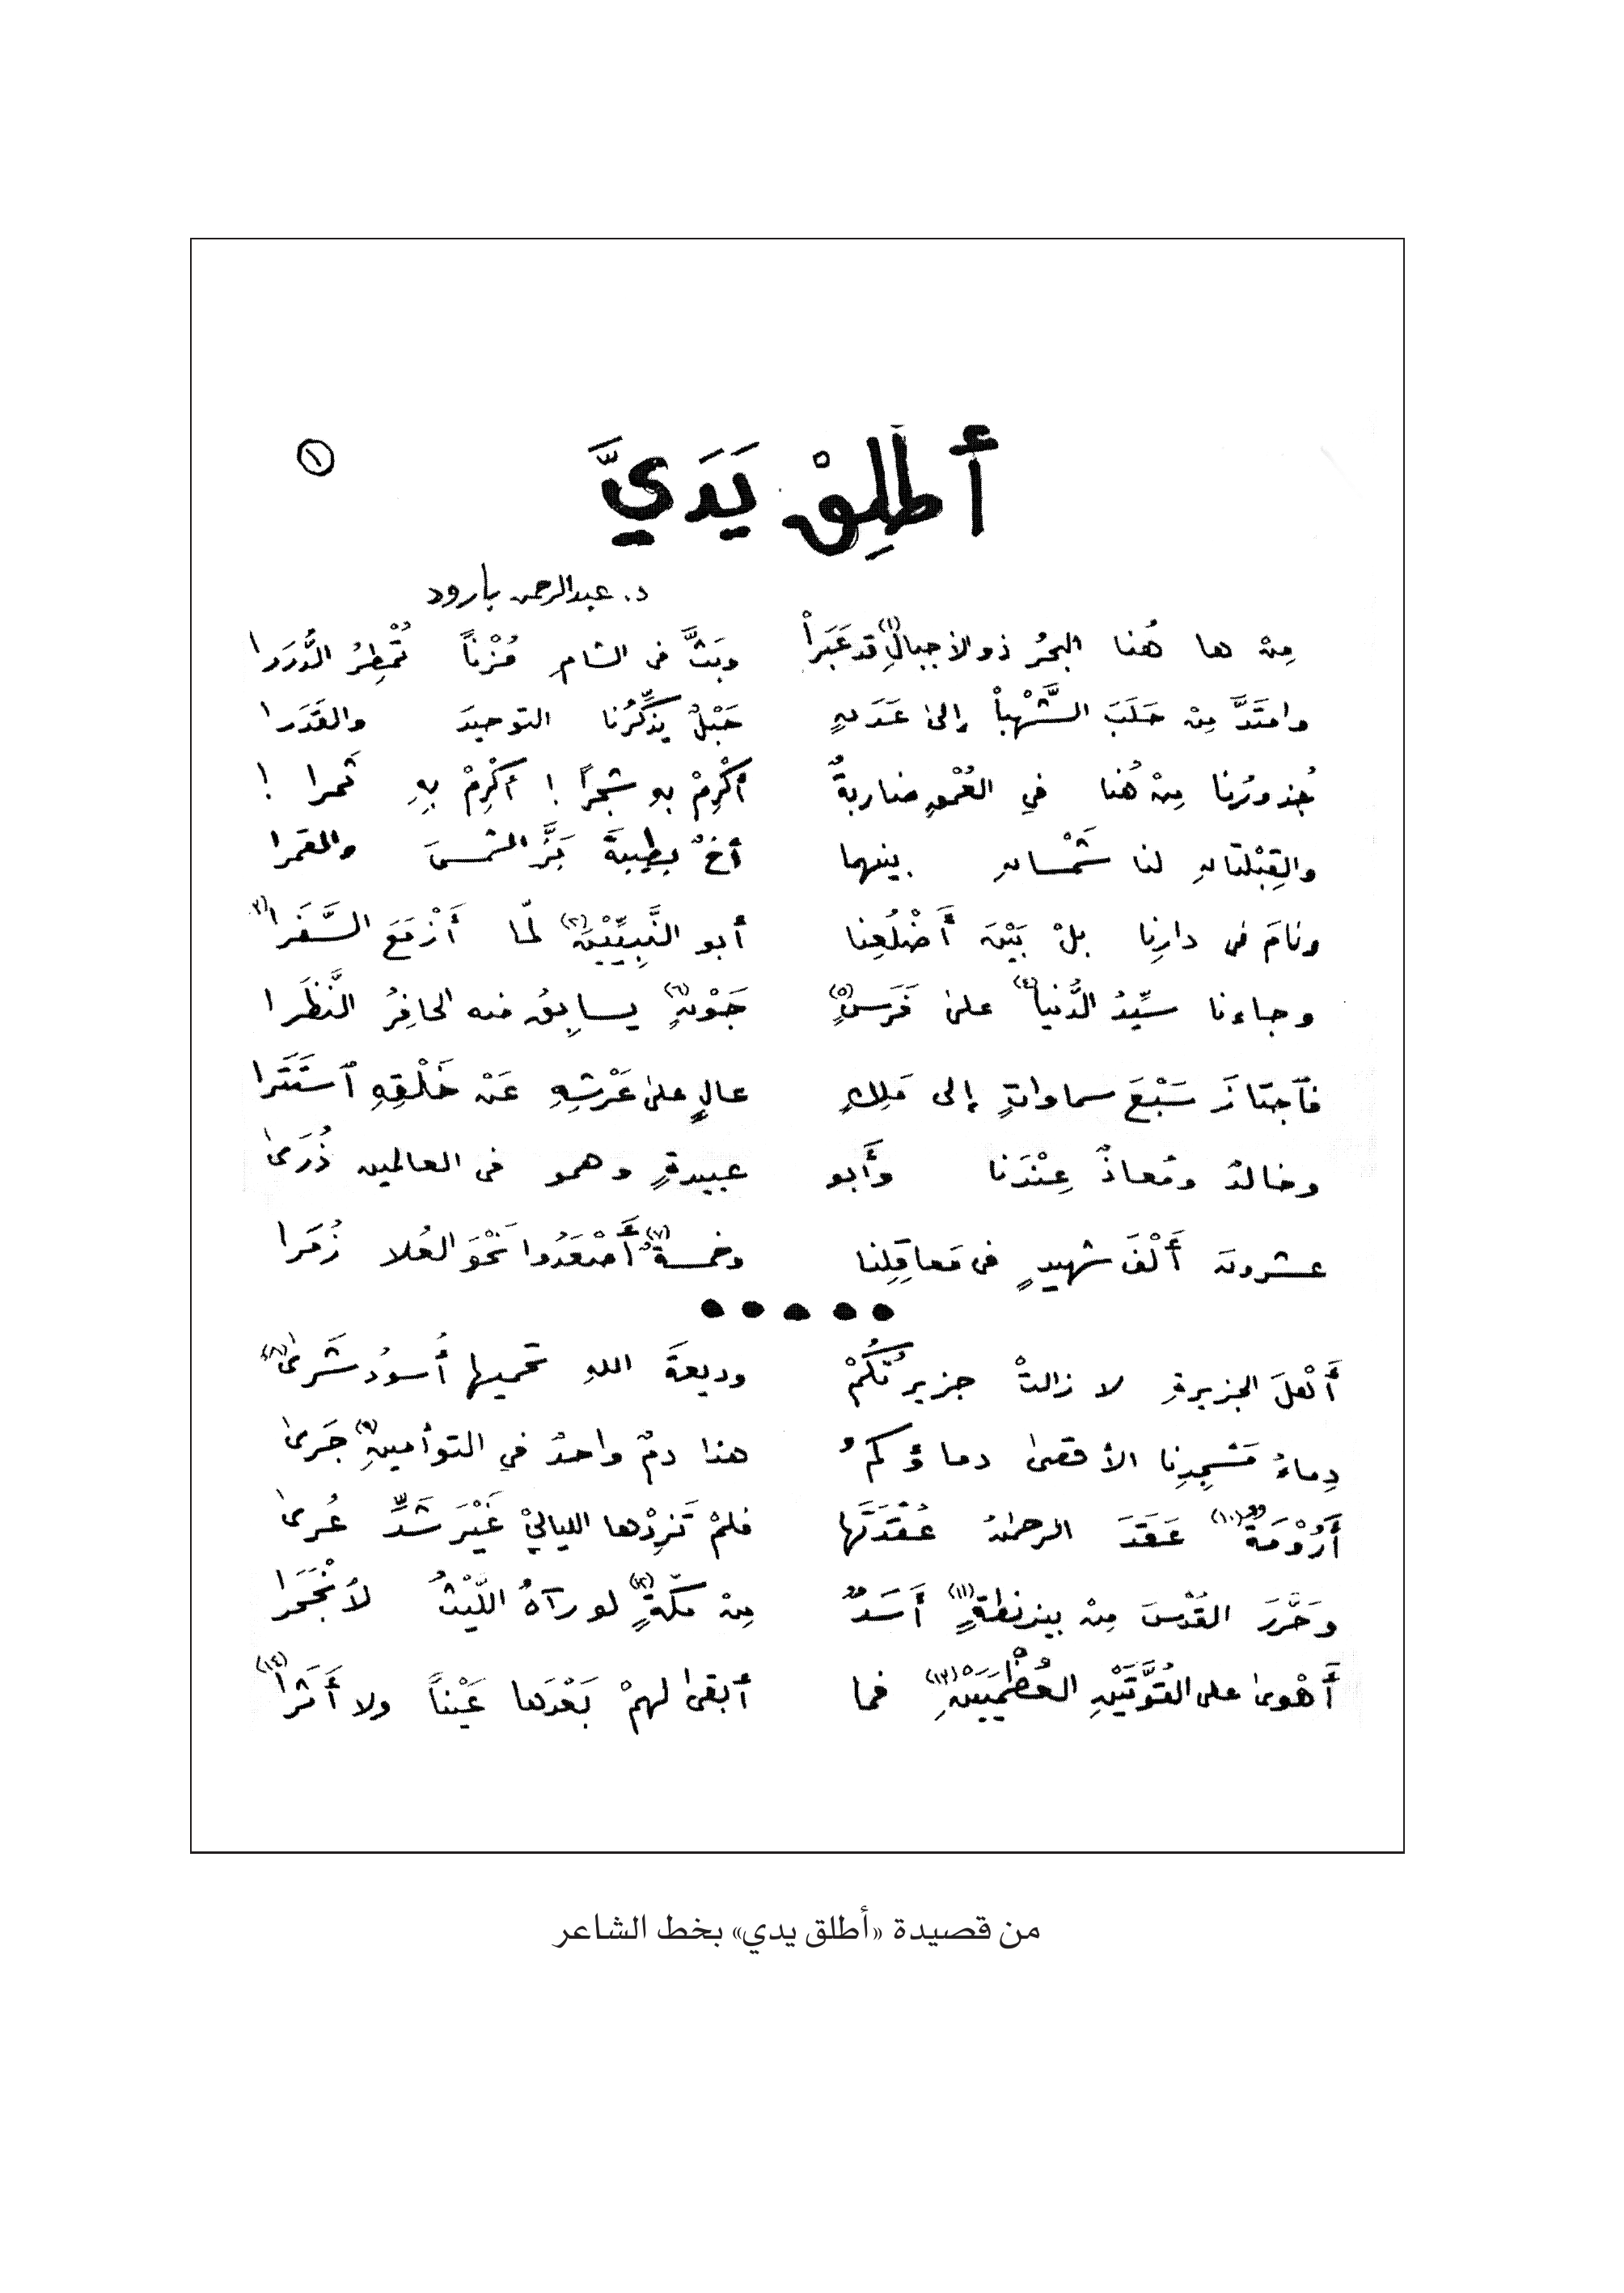 ١
أطلِقْ يَدَيَّ
د. عبدالرحمن بارود
مِنْ ها هُنا البحرُ ذو الأجبالِ(١) قد عَبَرا وبَثَّ في الشام مُزْناً تُمْطِرُ الدُّرَرا
وامتَدَّ مِنْ حَلَبَ الشَّهْبا إلى عَدَنٍ حَبْلٌ يُذَكِّرُنا التوحيدَ والقَدَرا
جُذورُنا مِنْ هُنا في العُمْقِ ضاربةٌ أكْرِمْ بهِ شجراً ! أكْرِمْ بِهِ ثَمرا !
والقِبْلتانِ لنا شَمْسانِ بينهما أخٌ بِطيبةَ بَزَّ الشمسَ والقمرا
ونامَ في دارِنا بلْ بَيْنَ أَضْلُعِنا أبو النَّبِيِّيْنَ(٢) لمّا أَزْمَعَ السَّفَرا(٣)
وجاءنا سيِّدُ الدُّنيا(٤) على فَرَسٍ(٥) جَوْنٍ(٦) يسابِقُ منه الحافِرُ النَّظَرا
فٱجتازَ سَبْعَ سماواتٍ إلى مَلِكٍ عالٍ على عَرْشِهِ عَنْ خَلْقِهِ ٱستَتَرا
وخالدٌ ومُعاذٌ عِنْدَنا وأَبو عبيدةٍ وهمو في العالمين ذُرَى
عشرونَ أَلْفَ شهيدٍ في مَعاقِلِنا وخمسةٌ(٧) أَصْعَدُوا نَحْوَ العُلا زُمَرا
● ● ● ● ●
أَهْلَ الجزيرةِ لا زالتْ جزيرتُكُمْ وديعةَ اللهِ تحميها أُسودُ شَرَى(٨)
دِماءُ مَسْجِدِنا الأقصى دماؤكمُ هذا دمٌ واحدٌ في التوأمينِ(٩) جَرَى
أَرُوْمَةٌ(١٠) عَقَدَ الرحمنُ عُقْدَتَها فلمْ تَزِدْها الليالِيْ غَيْرَ شَدِّ عُرى
وحَرَّرَ القُدْسَ مِنْ بيزنطةٍ(١١) أَسَدٌ مِنْ مكّةٍ(١٢) لو رآهُ اللَّيْثُ لانْجَحَرا
أَهْوى على القُوَّتَيْنِ العُظْمَيَيْنِ(١٣) فما أبقى لهمْ بَعْدَها عَيْناً ولا أَثَرا(١٤)
من قصيدة «أطلق يدي» بخط الشاعر